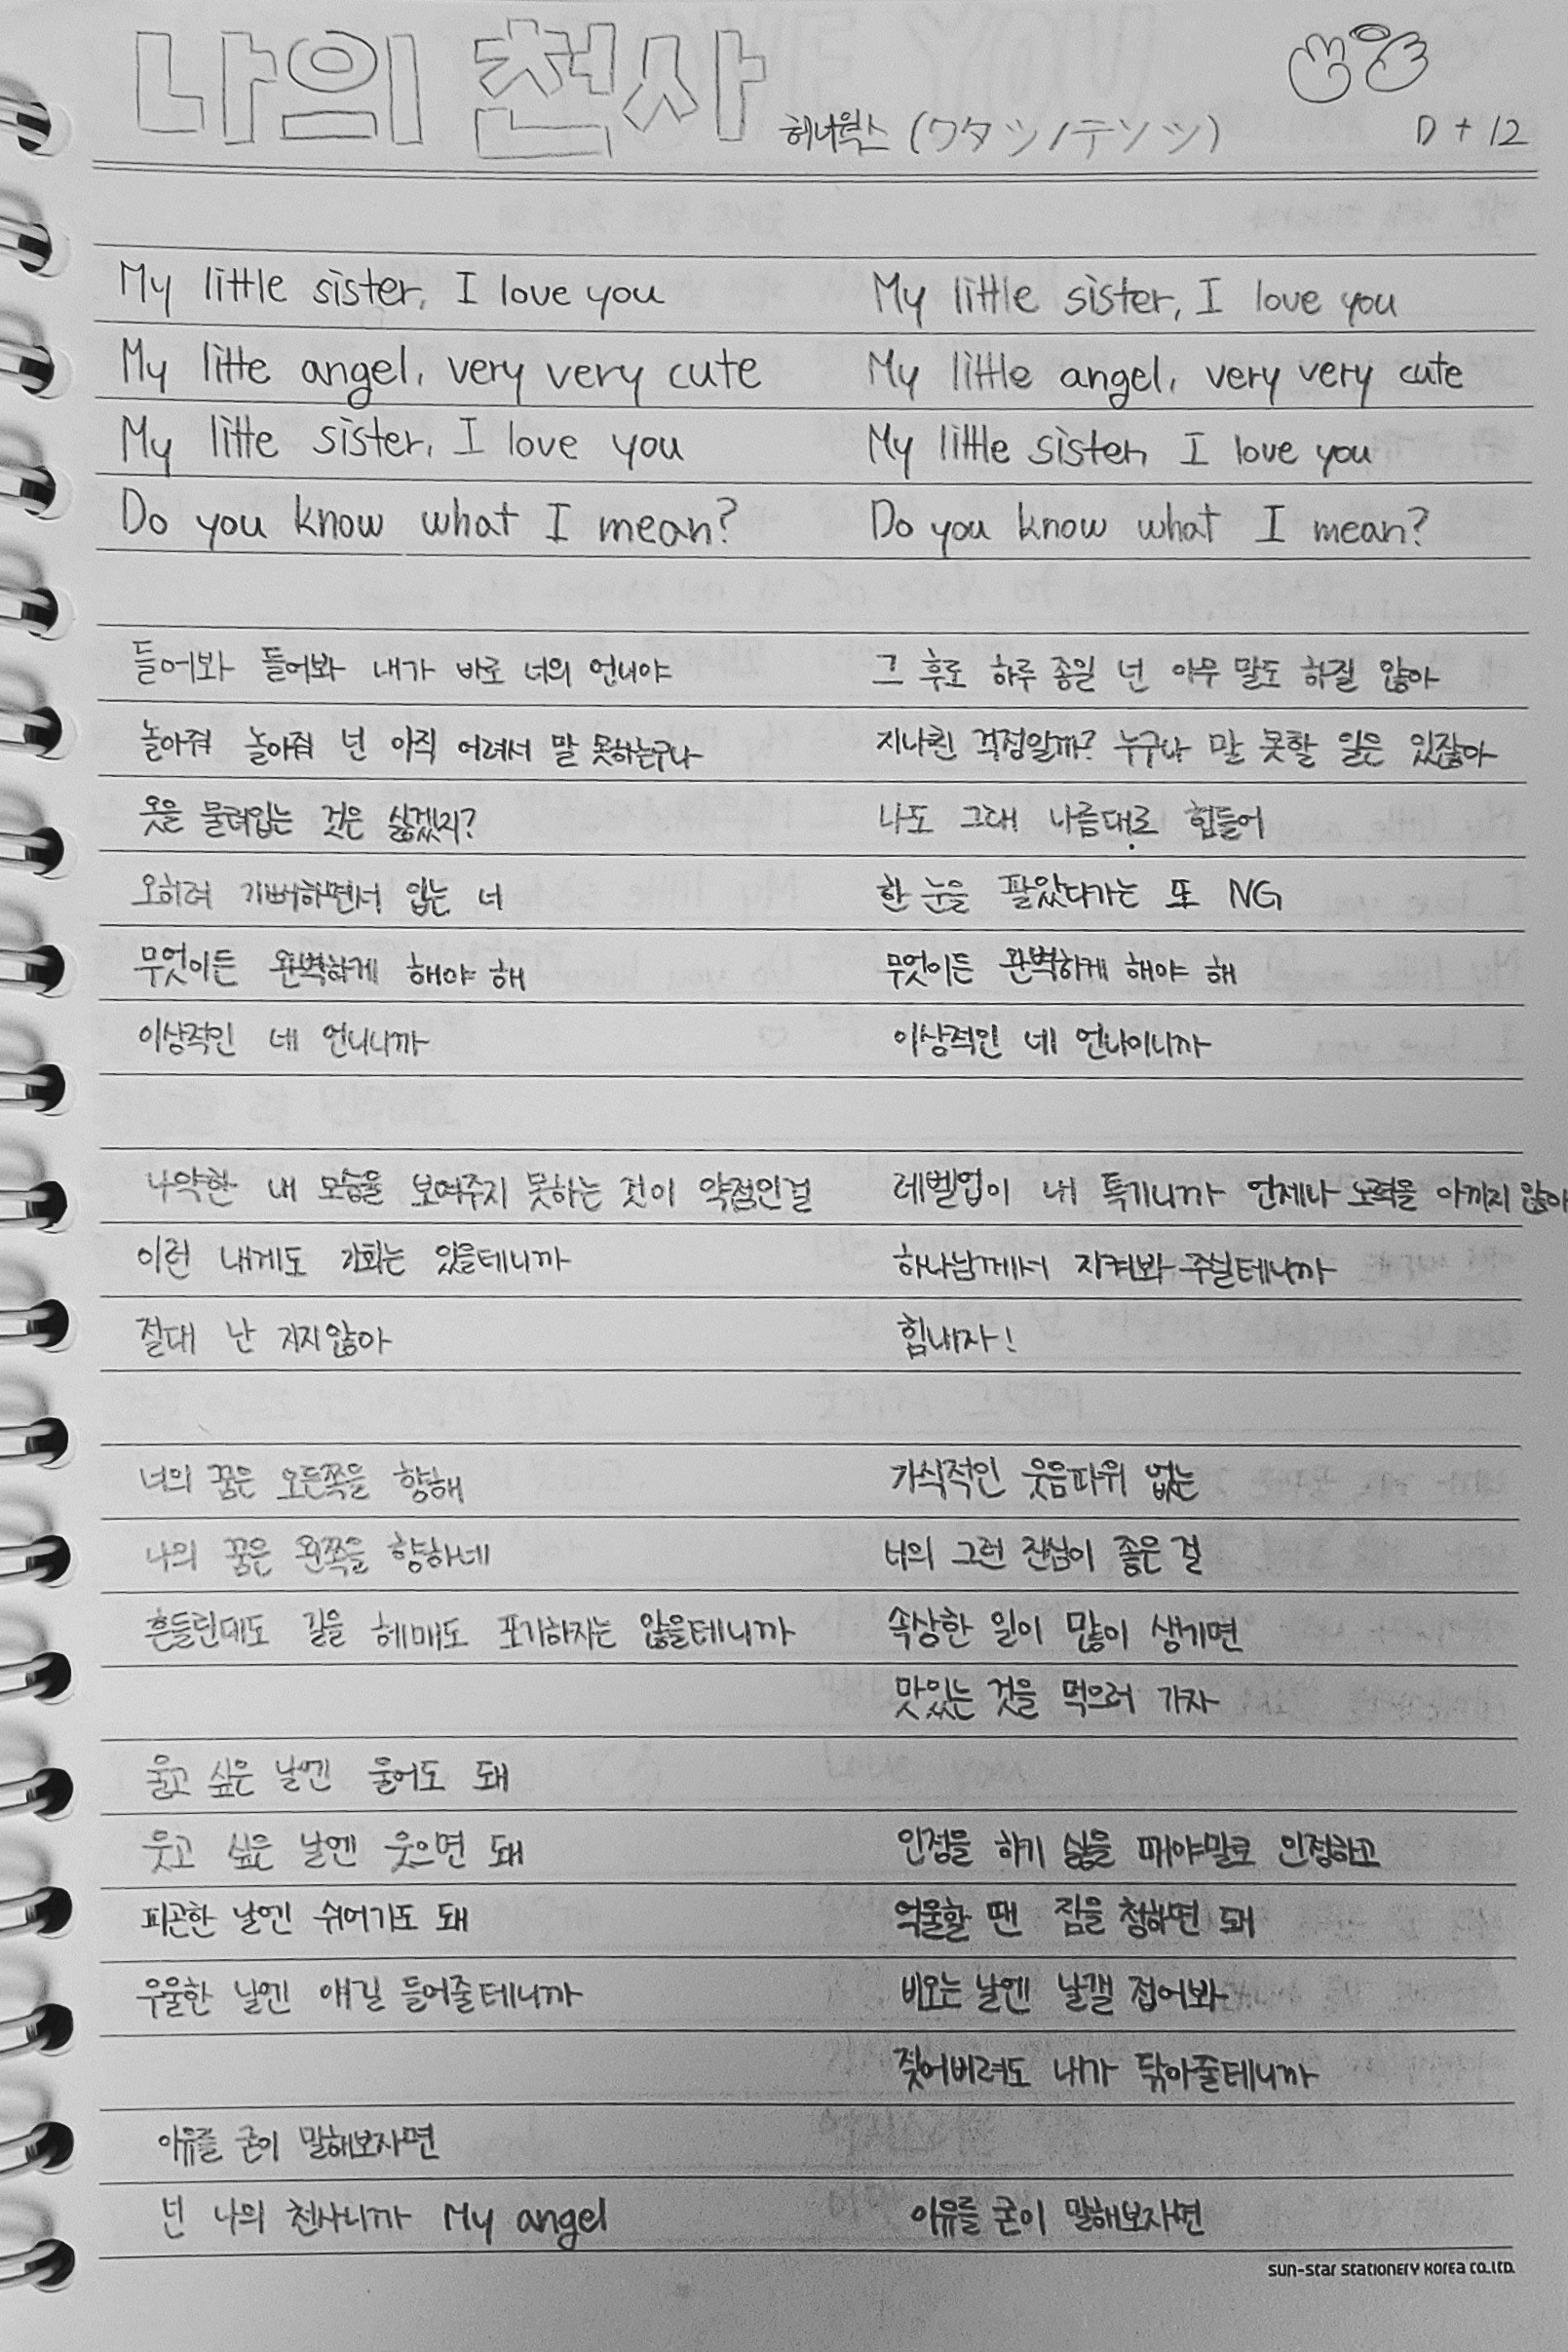 나의 천사 허니웍스 (ワタシノテンシ) D+12
My little sister, I love you
My little angel, very very cute
My little sister, I love you
Do you know what I mean?
들어봐 들어봐 내가 바로 너의 언니야
놀아줘 놀아줘 넌 아직 어려서 말 못하는구나
옷을 물려입는 것은 싫겠지?
오히려 기뻐하면서 입는 너
무엇이든 완벽하게 해야 해
이상적인 네 언니니까
나약한 내 모습을 보여주지 못하는 것이 약점인걸
이런 내게도 기회는 있을테니까
절대 난 지지않아
너의 꿈은 오른쪽을 향해
나의 꿈은 왼쪽을 향하네
흔들린대도 길을 헤매도 포기하지는 않을테니까
울고 싶은 날엔 울어도 돼
웃고 싶은 날엔 웃으면 돼
피곤한 날엔 쉬어가도 돼
우울한 날엔 얘길 들어줄테니까
이유를 굳이 말해보자면
넌 나의 천사니까 My angel
My little sister, I love you
My little angel, very very cute
My little sister, I love you
Do you know what I mean?
그 후로 하루 종일 넌 아무 말도 하질 않아
지나친 걱정일까? 누구나 말 못할 일은 있잖아
나도 그래 나름대로 힘들어
한 눈을 팔았다가는 또 NG
무엇이든 완벽하게 해야 해
이상적인 네 언니이니까
레벨업이 내 특기니까 언제나 노력을 아끼지 않아
하나님께서 지켜봐 주실테니까
힘내자!
가식적인 웃음따위 없는
너의 그런 진심이 좋은 걸
속상한 일이 많이 생기면
맛있는 것을 먹으러 가자
인정을 하기 싫을 때야말로 인정하고
억울할 땐 잠을 청하면 돼
비오는 날엔 날갤 접어봐
젖어버려도 내가 닦아줄테니까
이유를 굳이 말해보자면
sun-star stationery korea co.,ltd.